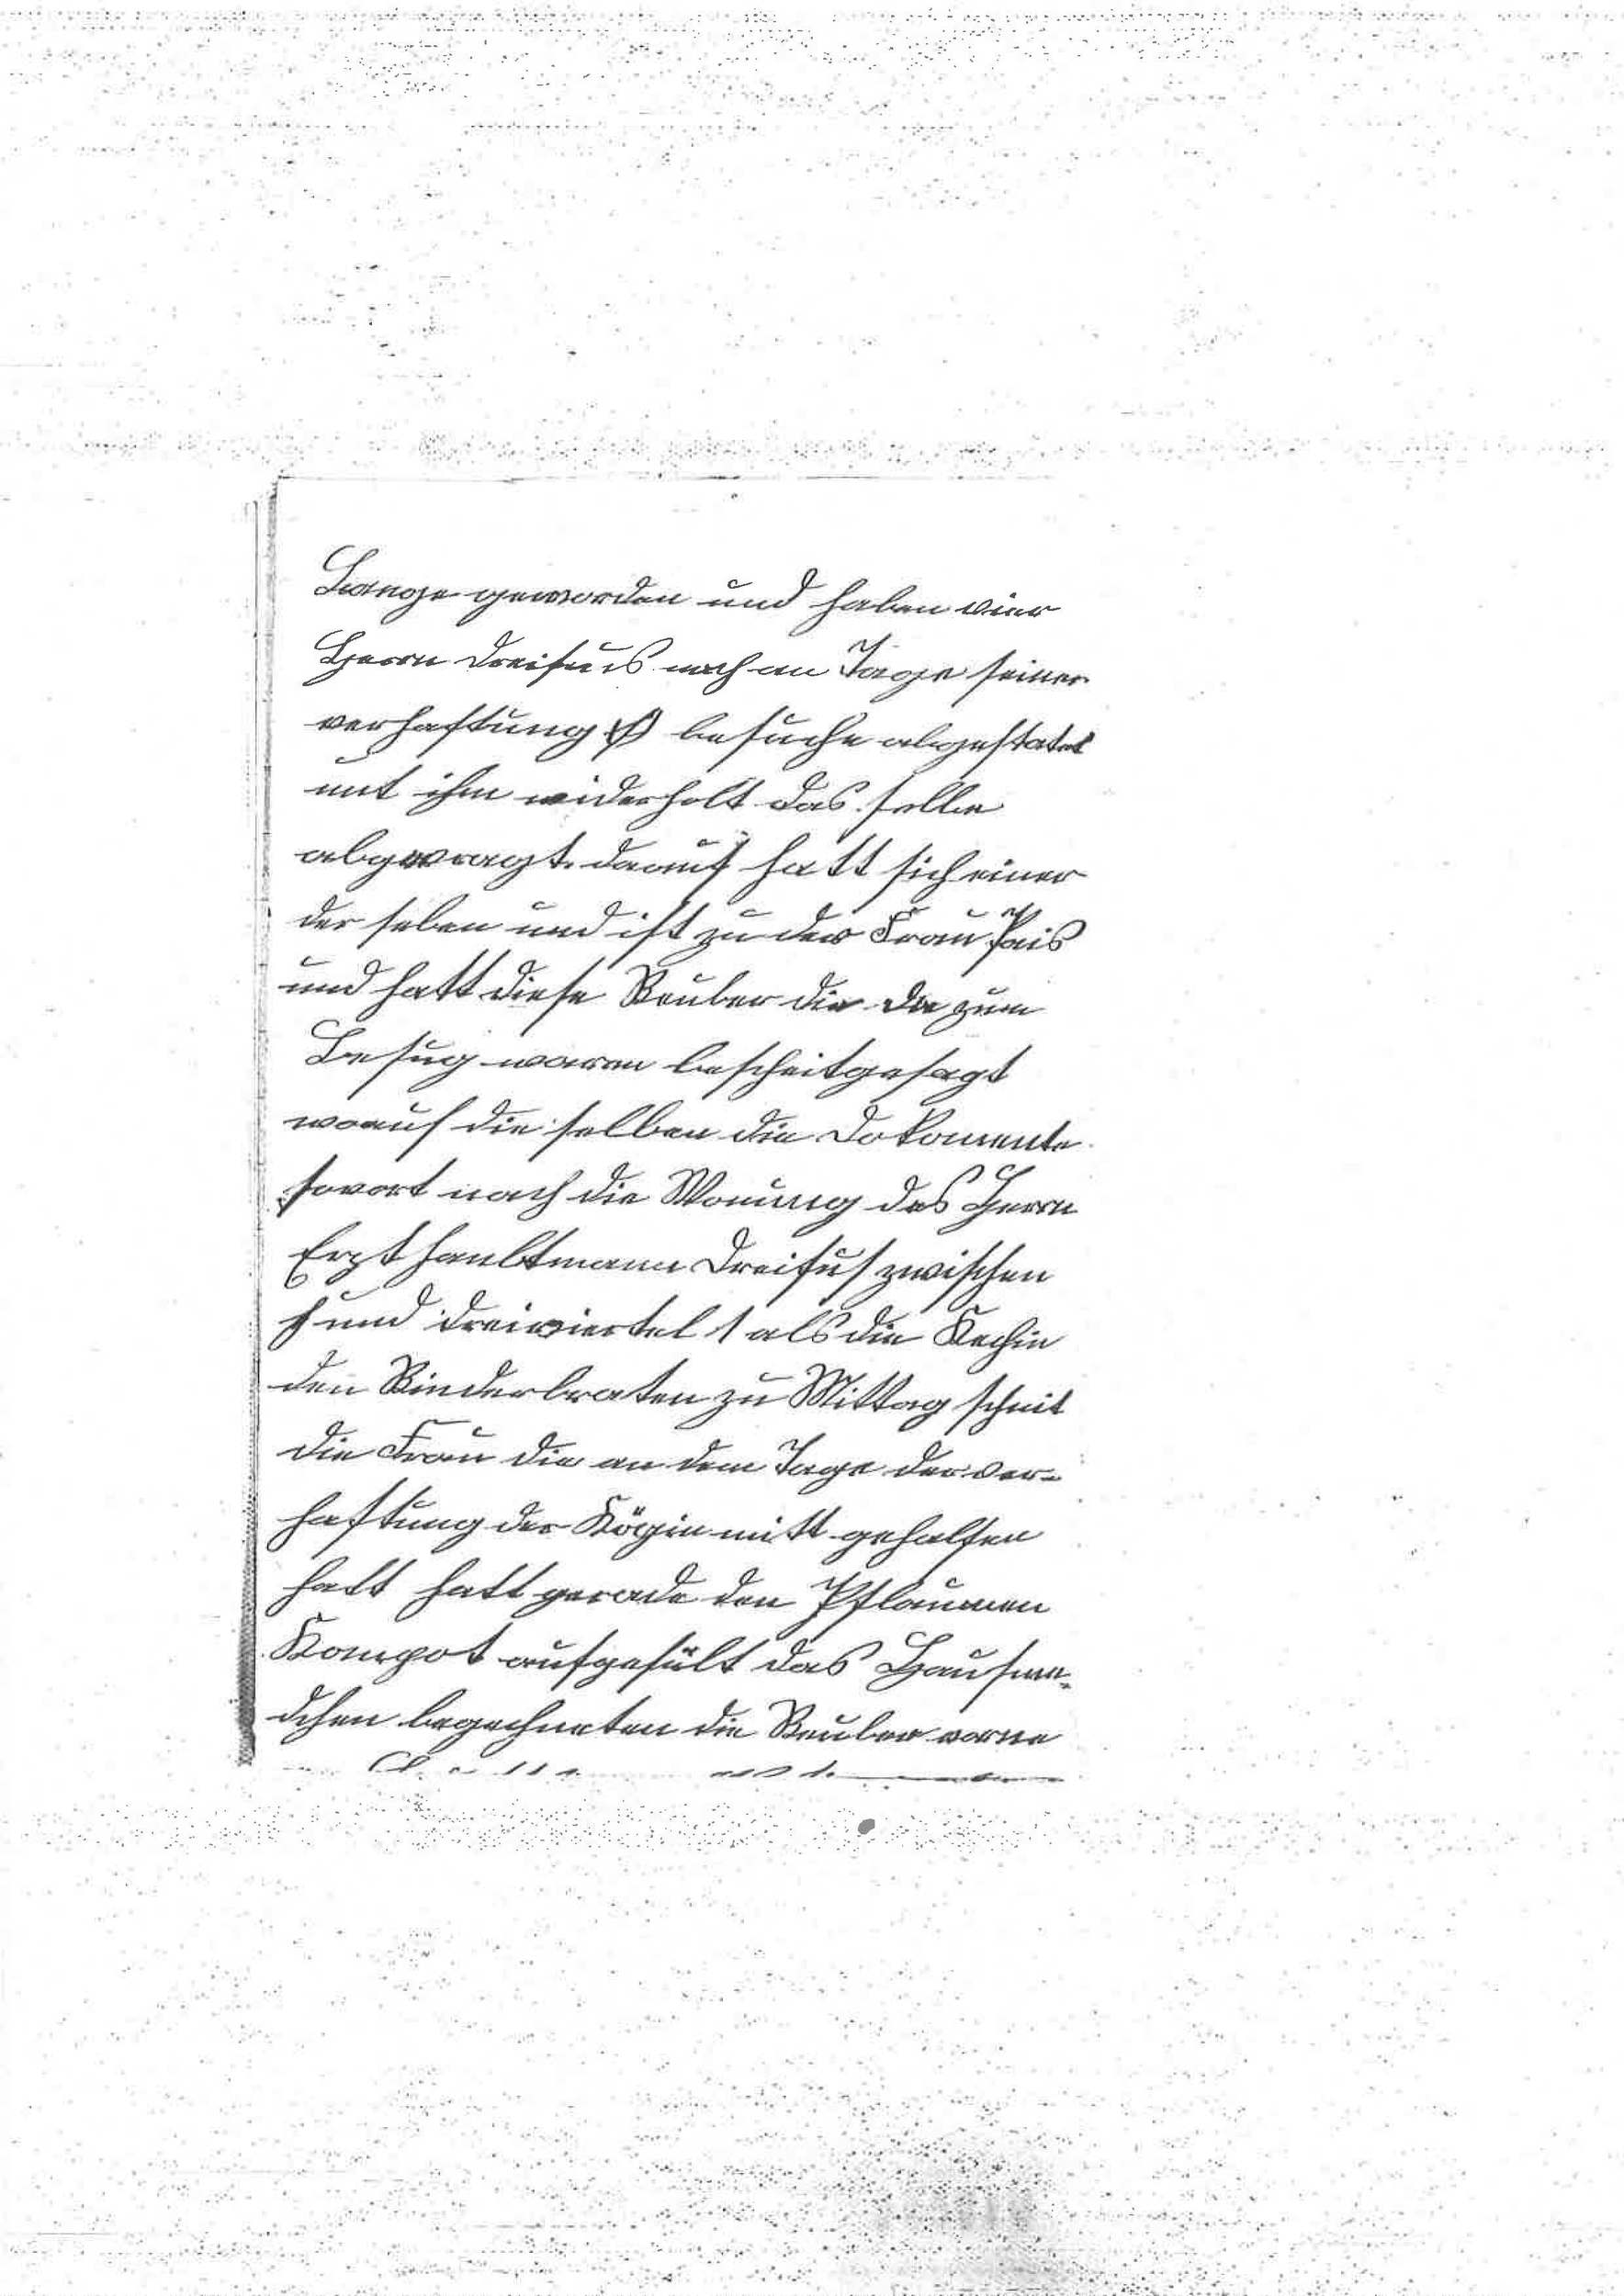 Lange geworden und haben vier
Herrn Dreifuss noch an Tage seiner
verhaftung besuche abgestatet
unt ihm widerholt das selbe
abgevragt. darauf hatt sich einer
der selben und ist zu der Frau Pais
und hatt diese Reuber die da zum
Besug waren bescheitgesagt
worauf die selben die Dokomente
sovort nach die Wonung des Herrn
Erzt haubtmann Dreifus zwischen
und dreiviertel 1 als die Kechin
den Rinderbraten zu Mittag schnit
die Frau die an dem Tage der ver-
haftung der Kögin mitt gehalfen
hatt hatt gerade den Pflaumen
Kompot aufgefült das Hausme-
dchen begechneten die Reuber vorne